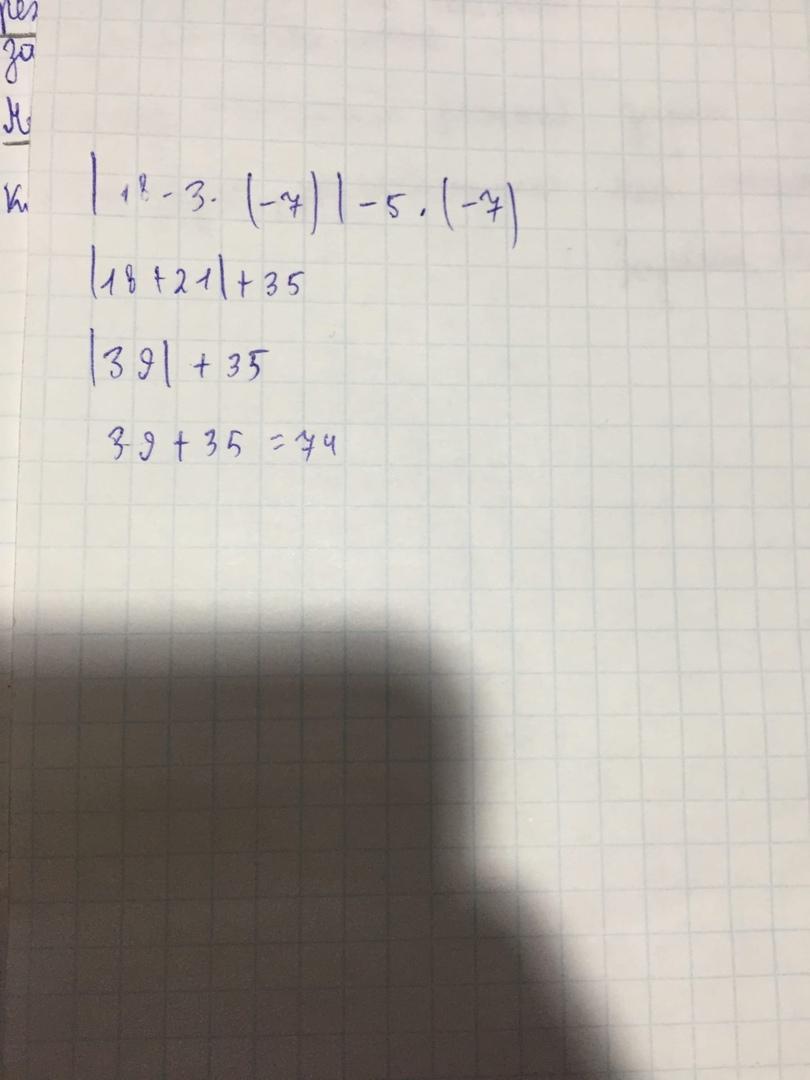 рез
за
| 18 - 3 · (-7) | - 5 · (-7)
|18 + 21| + 35
|39| + 35
39 + 35 = 74